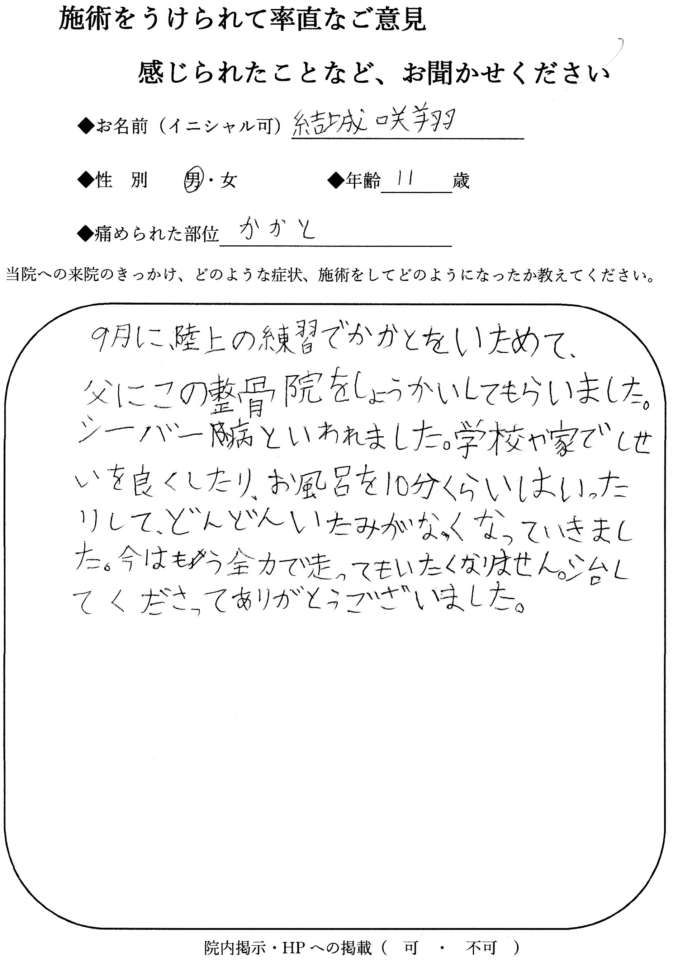 施術をうけられて率直なご意見
感じられたことなど、お聞かせください
◆お名前（イニシャル可）結城 咲翔
◆性 別 男・女 ◆年齢 11 歳
◆痛められた部位 かかと
当院への来院のきっかけ、どのような症状、施術をしてどのようになったか教えてください。
9月に、陸上の練習でかかとをいためて、
父にこの整骨院をしょうかいしてもらいました。
シーバー病といわれました。学校や家でしせ
いを良くしたり、お風呂を10分くらいはいった
りして、どんどんいたみがなくなっていきまし
た。今はもう全力で走ってもいたくなりません。治し
てくださってありがとうございました。
院内掲示・HPへの掲載（ 可 ・ 不可 ）